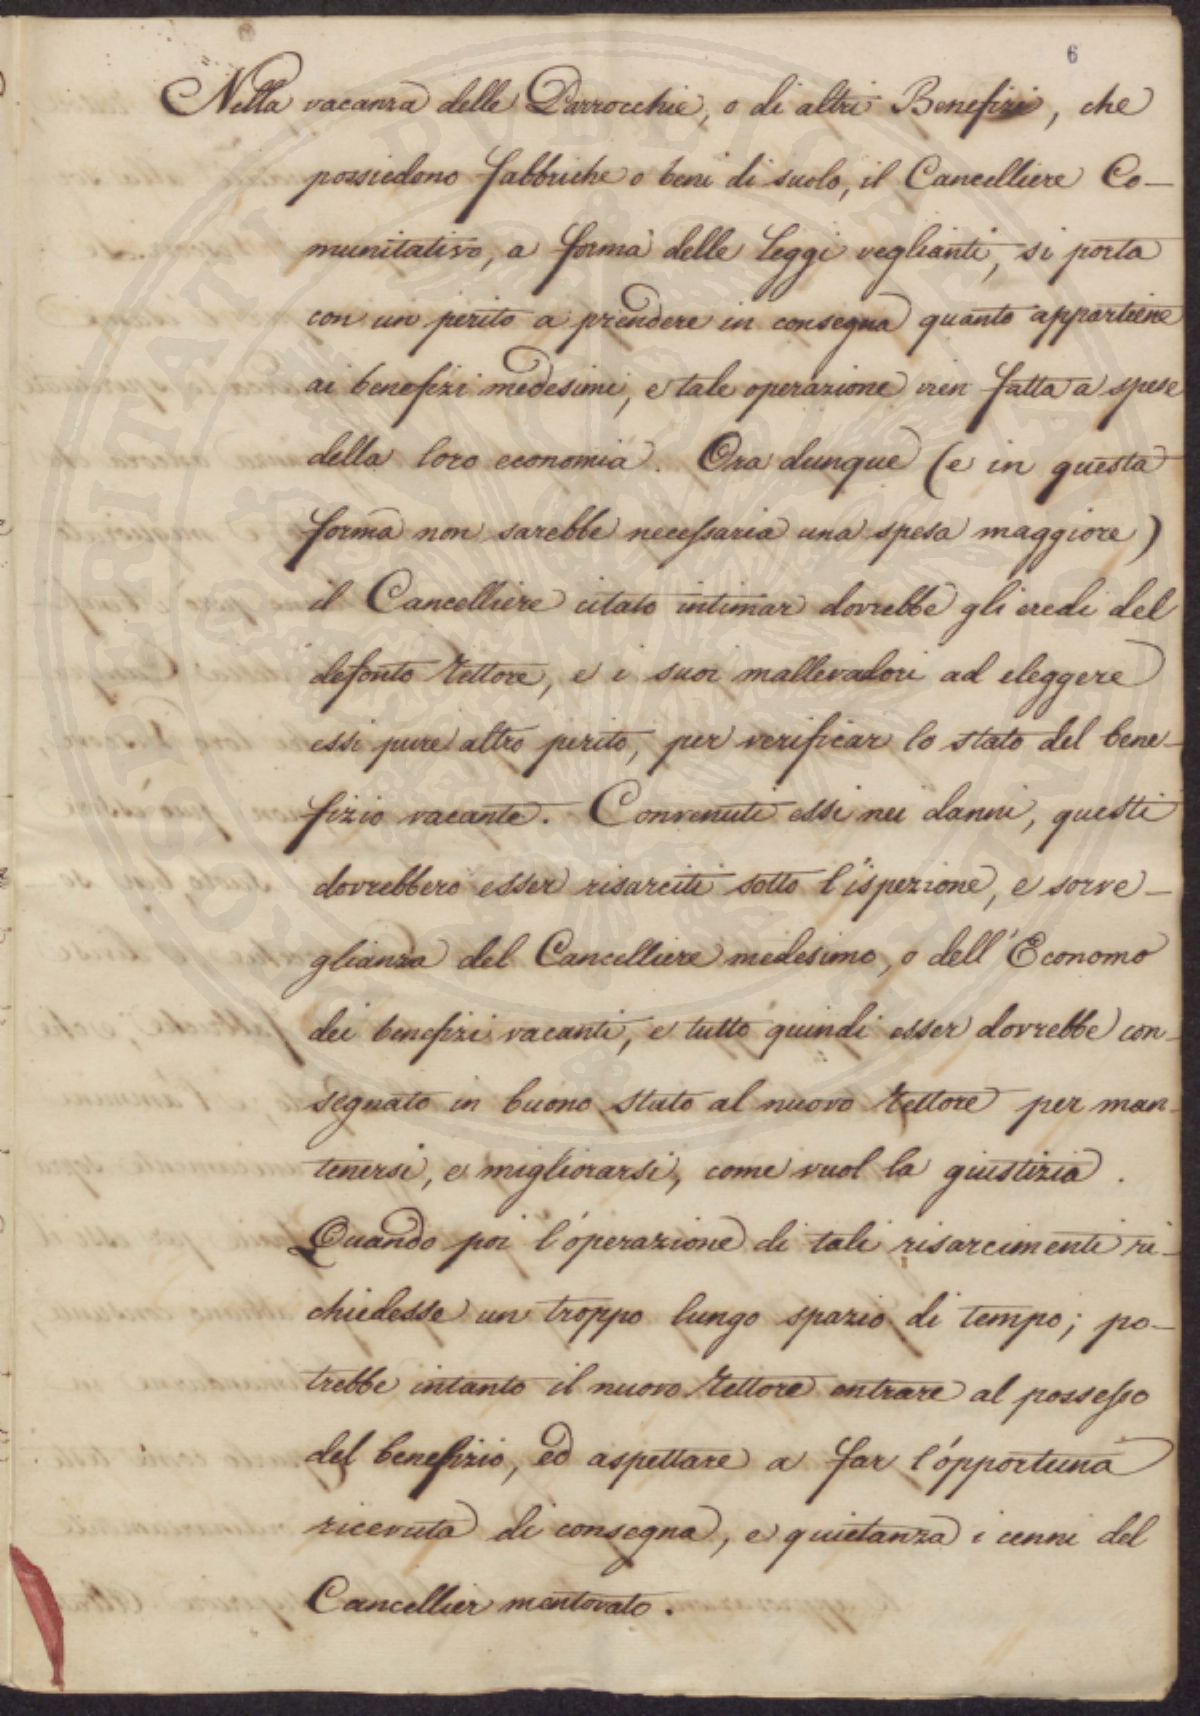 6
Nella vacanza delle Parrocchie, o di altri Benefizi, che
possiedono fabbriche o beni di suolo, il Cancelliere Co-
munitativo, a forma delle Leggi veglianti, si porta
con un perito a prendere in consegna quanto appartiene
ai benefizi medesimi, e tale operazione vien fatta a spese
della loro economia. Ora dunque (e in questa
forma non sarebbe necessaria una spesa maggiore)
il Cancelliere citato intimar dovrebbe gli eredi del
defonto Rettore, e i suoi mallevadori ad eleggere
essi pure altro perito, per verificar lo stato del bene-
fizio vacante. Convenuti essi nei danni, questi
dovrebbero esser risarciti sotto l'ispezione, e sorve-
glianza del Cancelliere medesimo, o dell'Economo
dei benefizi vacanti, e tutto quindi esser dovrebbe con-
segnato in buono stato al nuovo Rettore per man-
tenersi, e migliorarsi, come vuol la giustizia.
Quando poi l'operazione di tali risarcimenti ri-
chiedesse un troppo lungo spazio di tempo; po-
trebbe intanto il nuovo Rettore entrare al possesso
del benefizio, ed aspettare a far l'opportuna
ricevuta di consegna, e quietanza i cenni del
Cancellier mentovato.